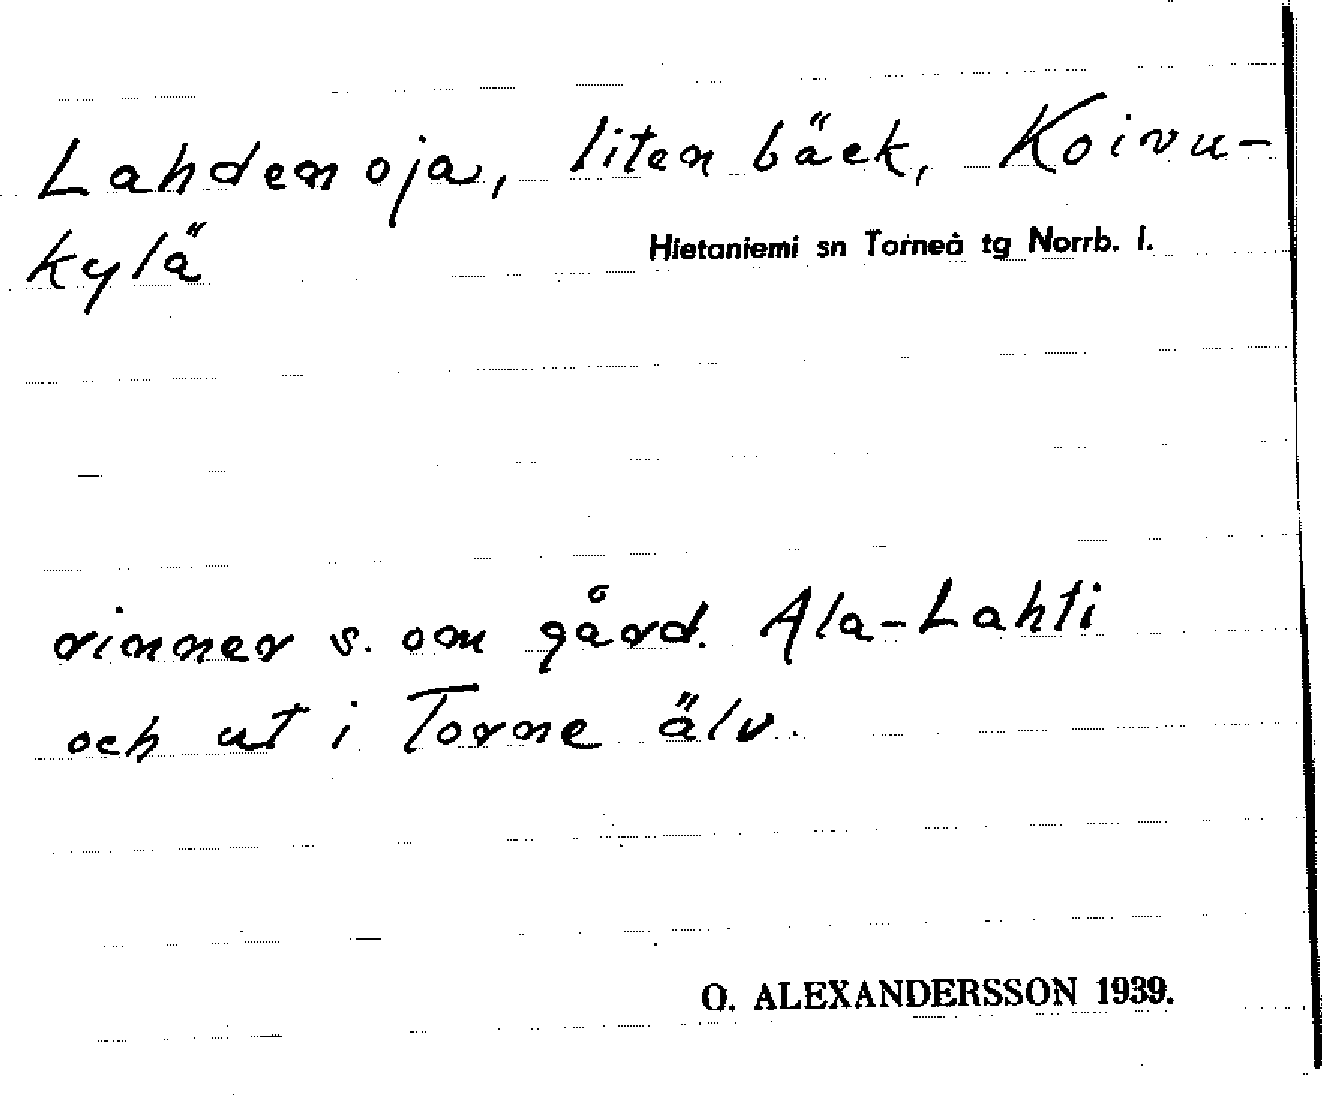 Lahdenoja, liten bäck, Koivu-
kylä
Hietaniemi sn Torneå tg Norrb. l.
rinner s. om gård. Ala-Lahti
och ut i Torne älv.
O. ALEXANDERSSON 1939.